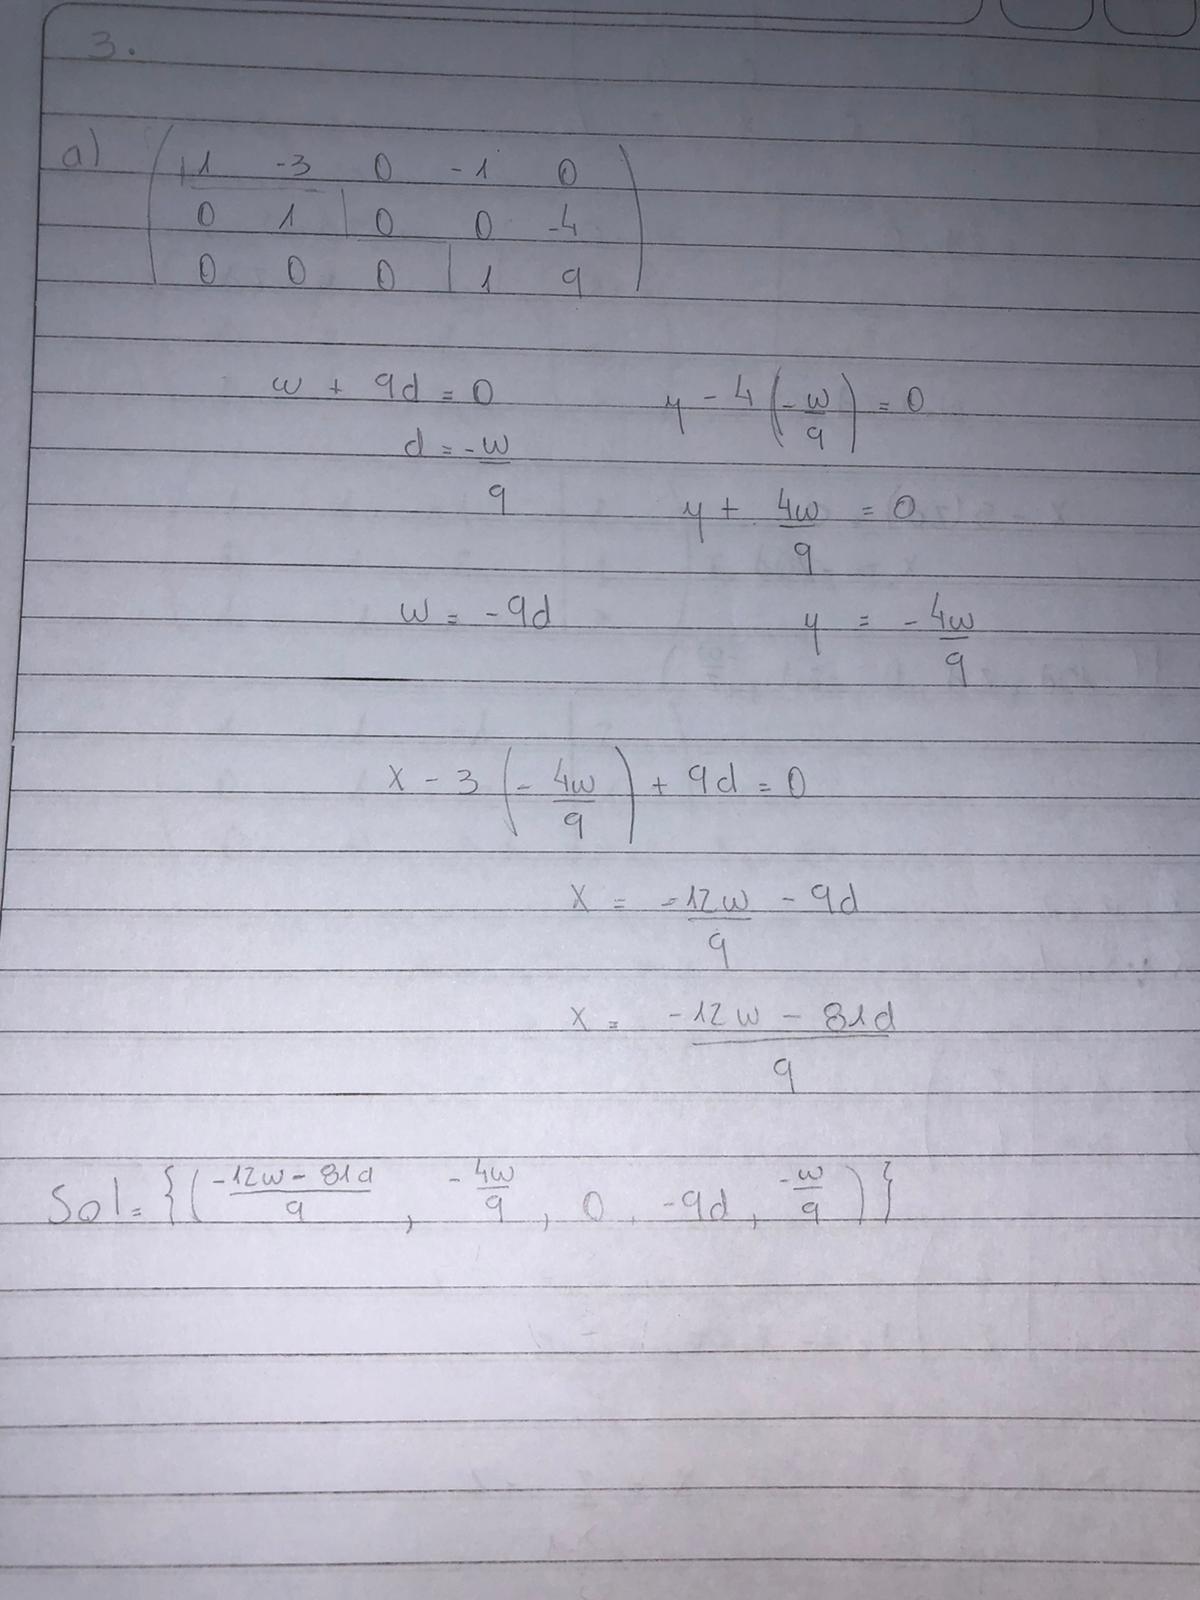 3.
a) ( 1 -3 0 -1 0
0 1 0 0 -4
0 0 0 1 9 )
w + 9d = 0
d = -w/9
w = -9d
y - 4 (-w/9) = 0
y + 4w/9 = 0
y = -4w/9
x - 3 (-4w/9) + 9d = 0
x = -12w/9 - 9d
x = (-12w - 81d)/9
Sol = {( (-12w - 81d)/9 , -4w/9 , 0, -9d, -w/9 )}